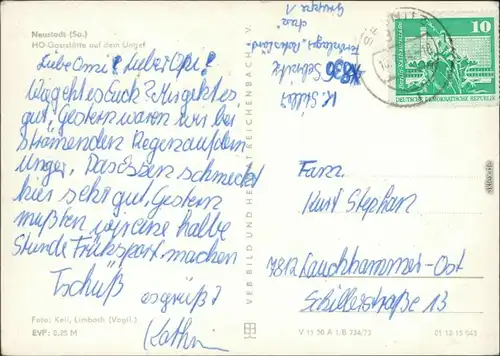 Neustadt (Sa.)
HO-Gaststätte auf dem Unger
Liebe Omi! Lieber Opi!
Wie geht es Euch? Mir geht es
gut. Gestern waren wir bei
strömenden Regen auf dem
Unger. Das Essen schmeckt
hier sehr gut. Gestern
mußten wir eine halbe
Stunde Frühsport machen
Tschüß
es grüßt
Kathrin
Foto: Keil, Limbach (Vogtl.)
EVP: 0,25 M
VEB BILD UND HEIMAT REICHENBACH V.
V 11 50 A 1/B 734/73
01 12 15 043
K.
836 Sebnitz
Gruppe 1
10
Berlin-Stadtzentrum
DEUTSCHE DEMOKRATISCHE REPUBLIK
Fam.
Kurt Stephan
7812 Lauchhammer-Ost
Schillerstraße 13